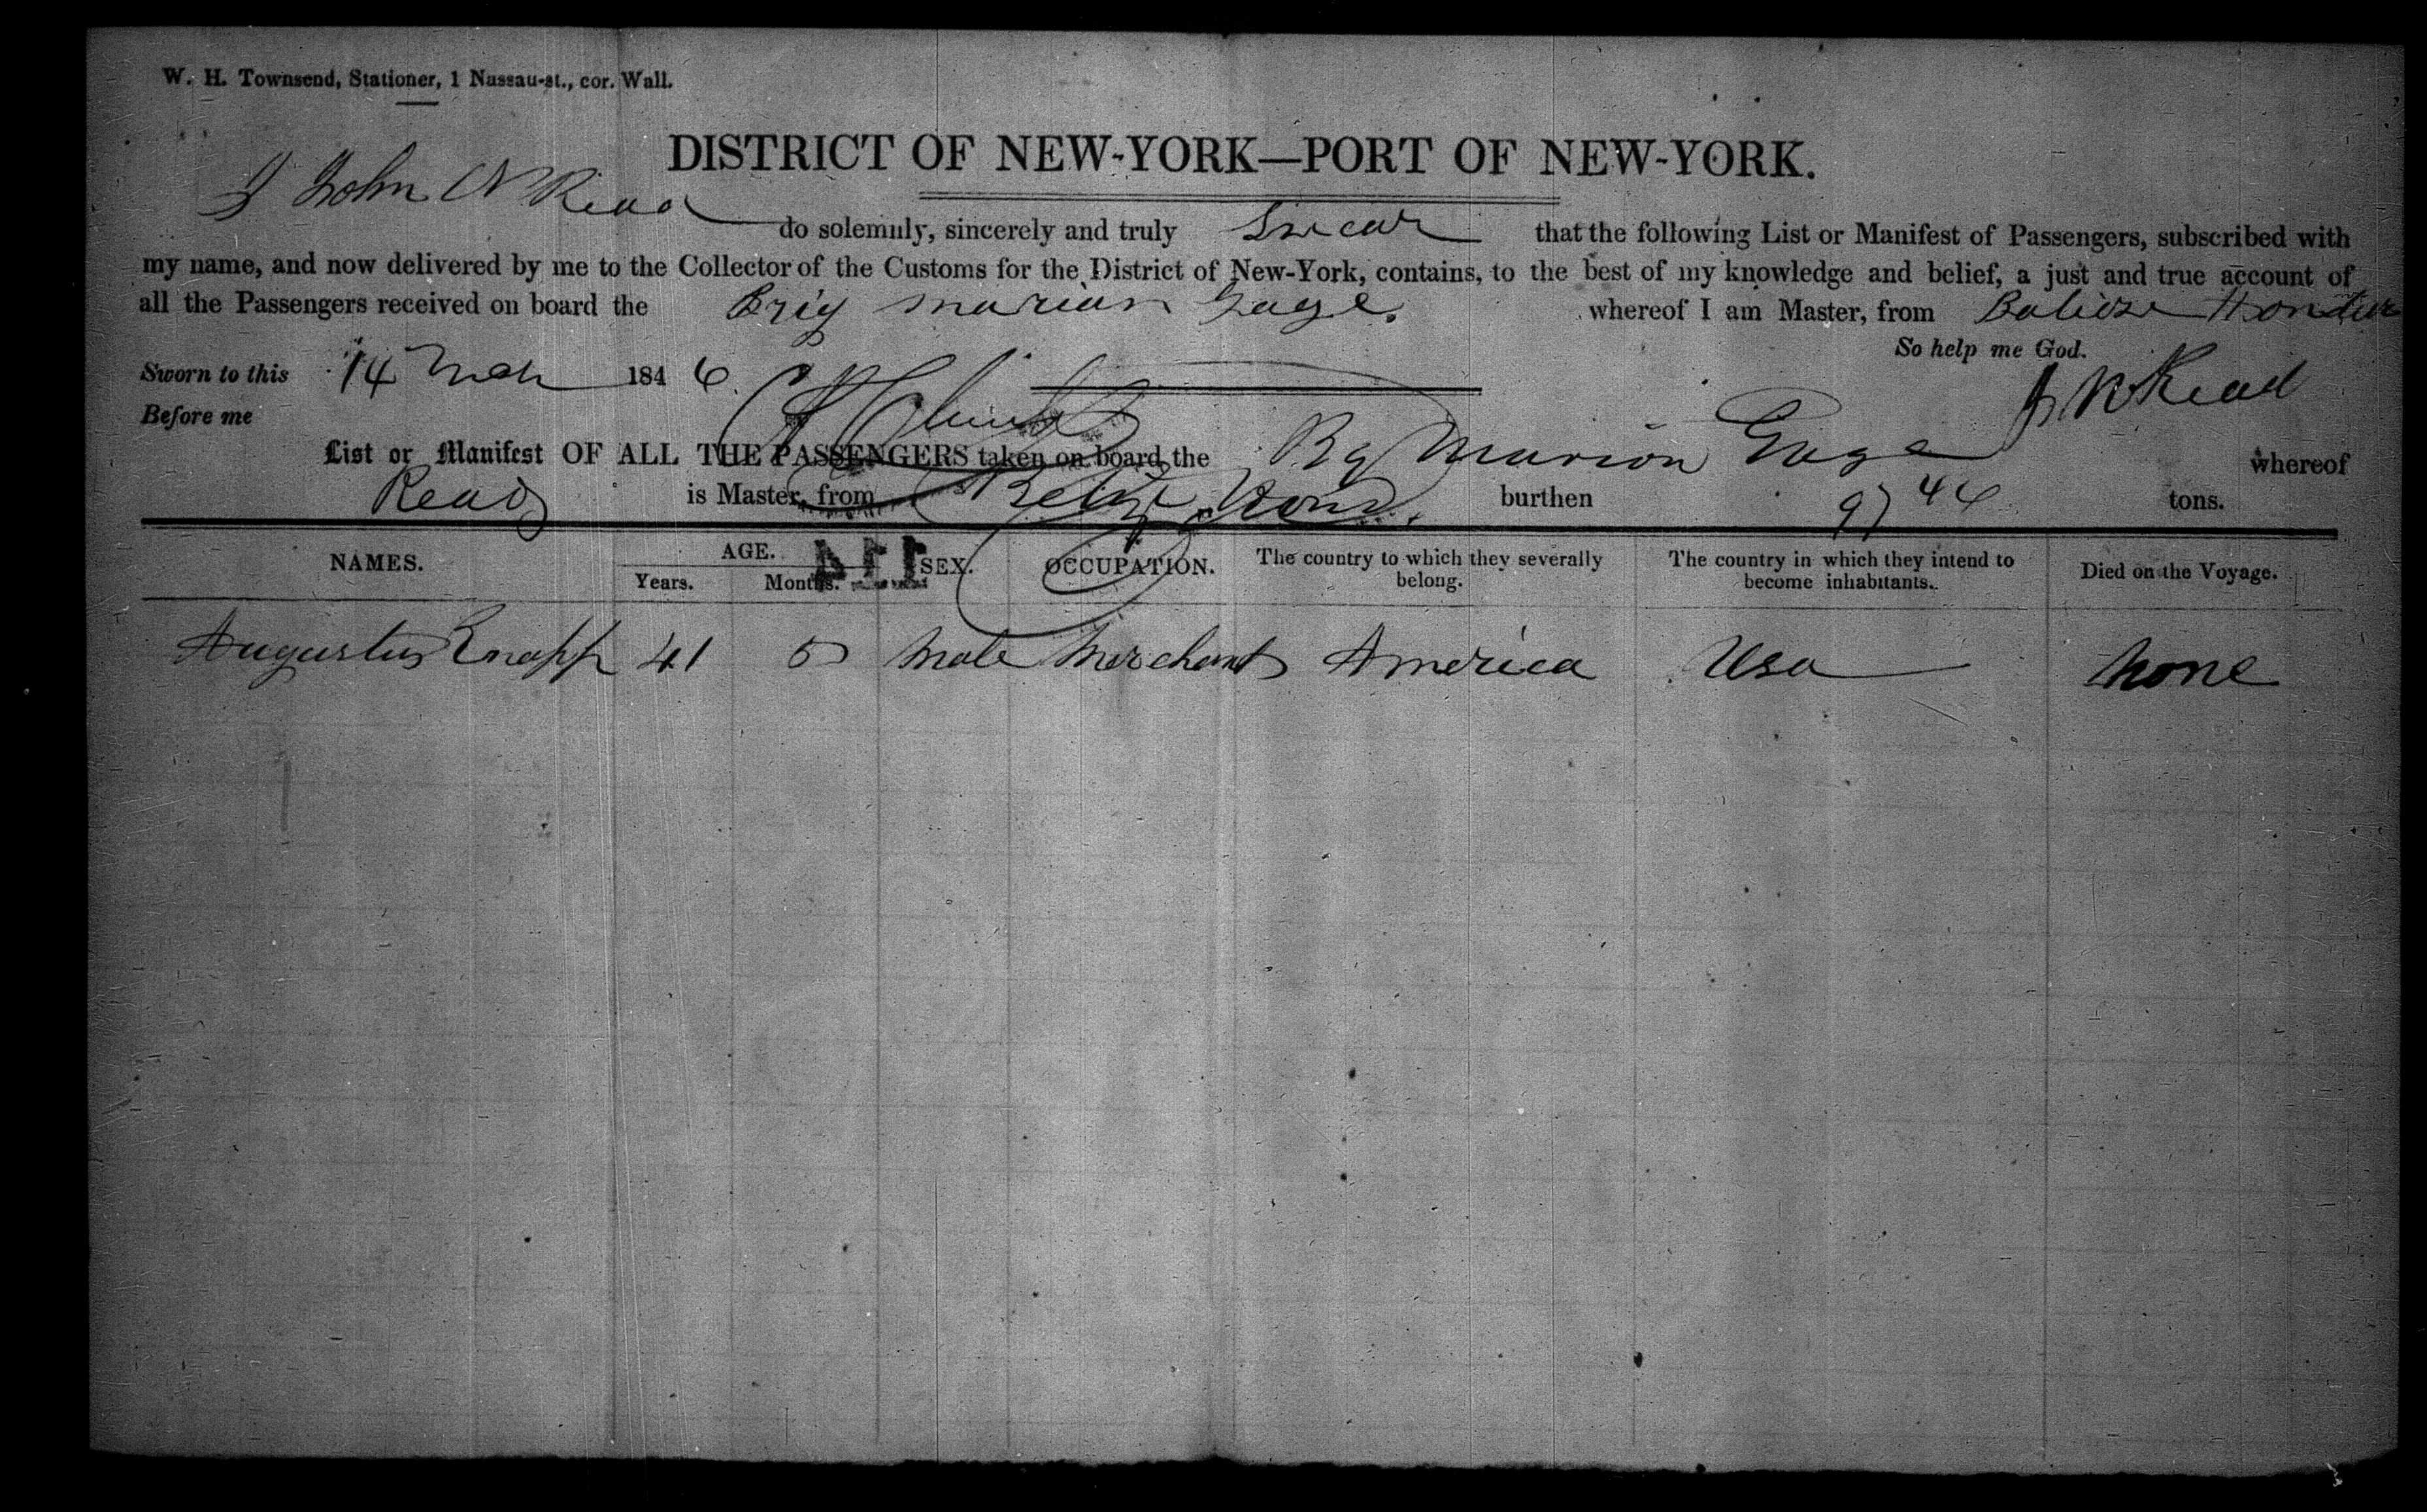 W. H. Townsend, Stationer, 1 Nassau-st., cor. Wall.
DISTRICT OF NEW-YORK—PORT OF NEW-YORK.
I John N Read do solemnly, sincerely and truly Swear that the following List or Manifest of Passengers, subscribed with
my name, and now delivered by me to the Collector of the Customs for the District of New-York, contains, to the best of my knowledge and belief, a just and true account of
all the Passengers received on board the Brig Marian Gage. whereof I am Master, from Balieze Hondur
So help me God.
Sworn to this 14 Mch 1846
J. N Read
Before me
List or Manifest OF ALL THE PASSENGERS taken on board the Bg Marion Gage whereof
Read is Master, from Belize Hond. burthen tons.
NAMES. AGE. SEX. OCCUPATION. The country to which they severally belong. The country in which they intend to become inhabitants. Died on the Voyage.
Years. Months.
114
Augustus Knapp 41 5 Male Merchant America Usa none